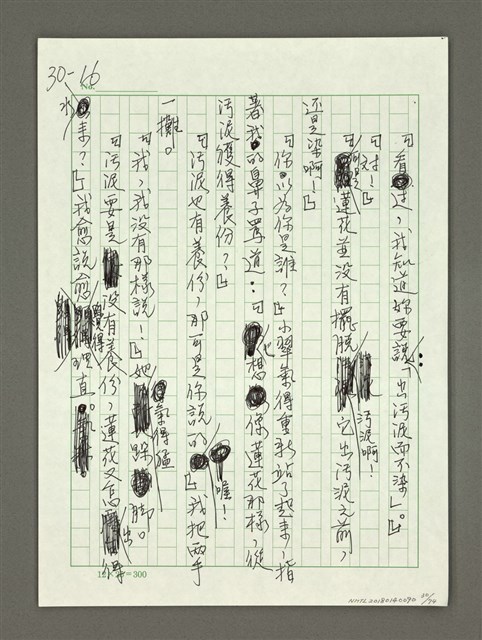 30-16
No.
「看過，我知道妳要說：「出污泥而不染」。」
「對！」
「可是蓮花並沒有擺脫污泥啊！它出污泥之前，
还是染啊！」
「你以為你是誰？」小翠氣得重新站了起來，指
著我的鼻子罵道：「他想像蓮花那樣，從
污泥獲得養份？」
「污泥也有養份，那可是你說的喔！」我把兩手
一攤。
「我，我没有那樣說！」她氣得猛跺脚。
「污泥要是没有養份，蓮花又怎出得
水來？」我愈說愈覺得理直。
=300
NMTL20180140090 30/74